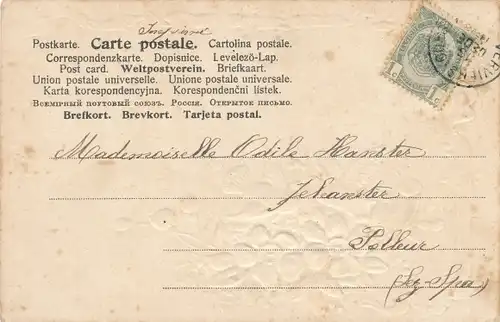 Imprimé
Postkarte. Carte postale. Cartolina postale.
Correspondenzkarte. Dopisnice. Levelező-Lap.
Post card. Weltpostverein. Briefkaart.
Union postale universelle. Unione postale universale.
Karta korespondencyjna. Korespondenční lístek.
Всемірный почтовый союзъ. Россія. Открытое письмо.
Brefkort. Brevkort. Tarjeta postal.
Mademoiselle Odile Hanster
Jehanster
Polleur
(Lez-Spa)
VERVIERS